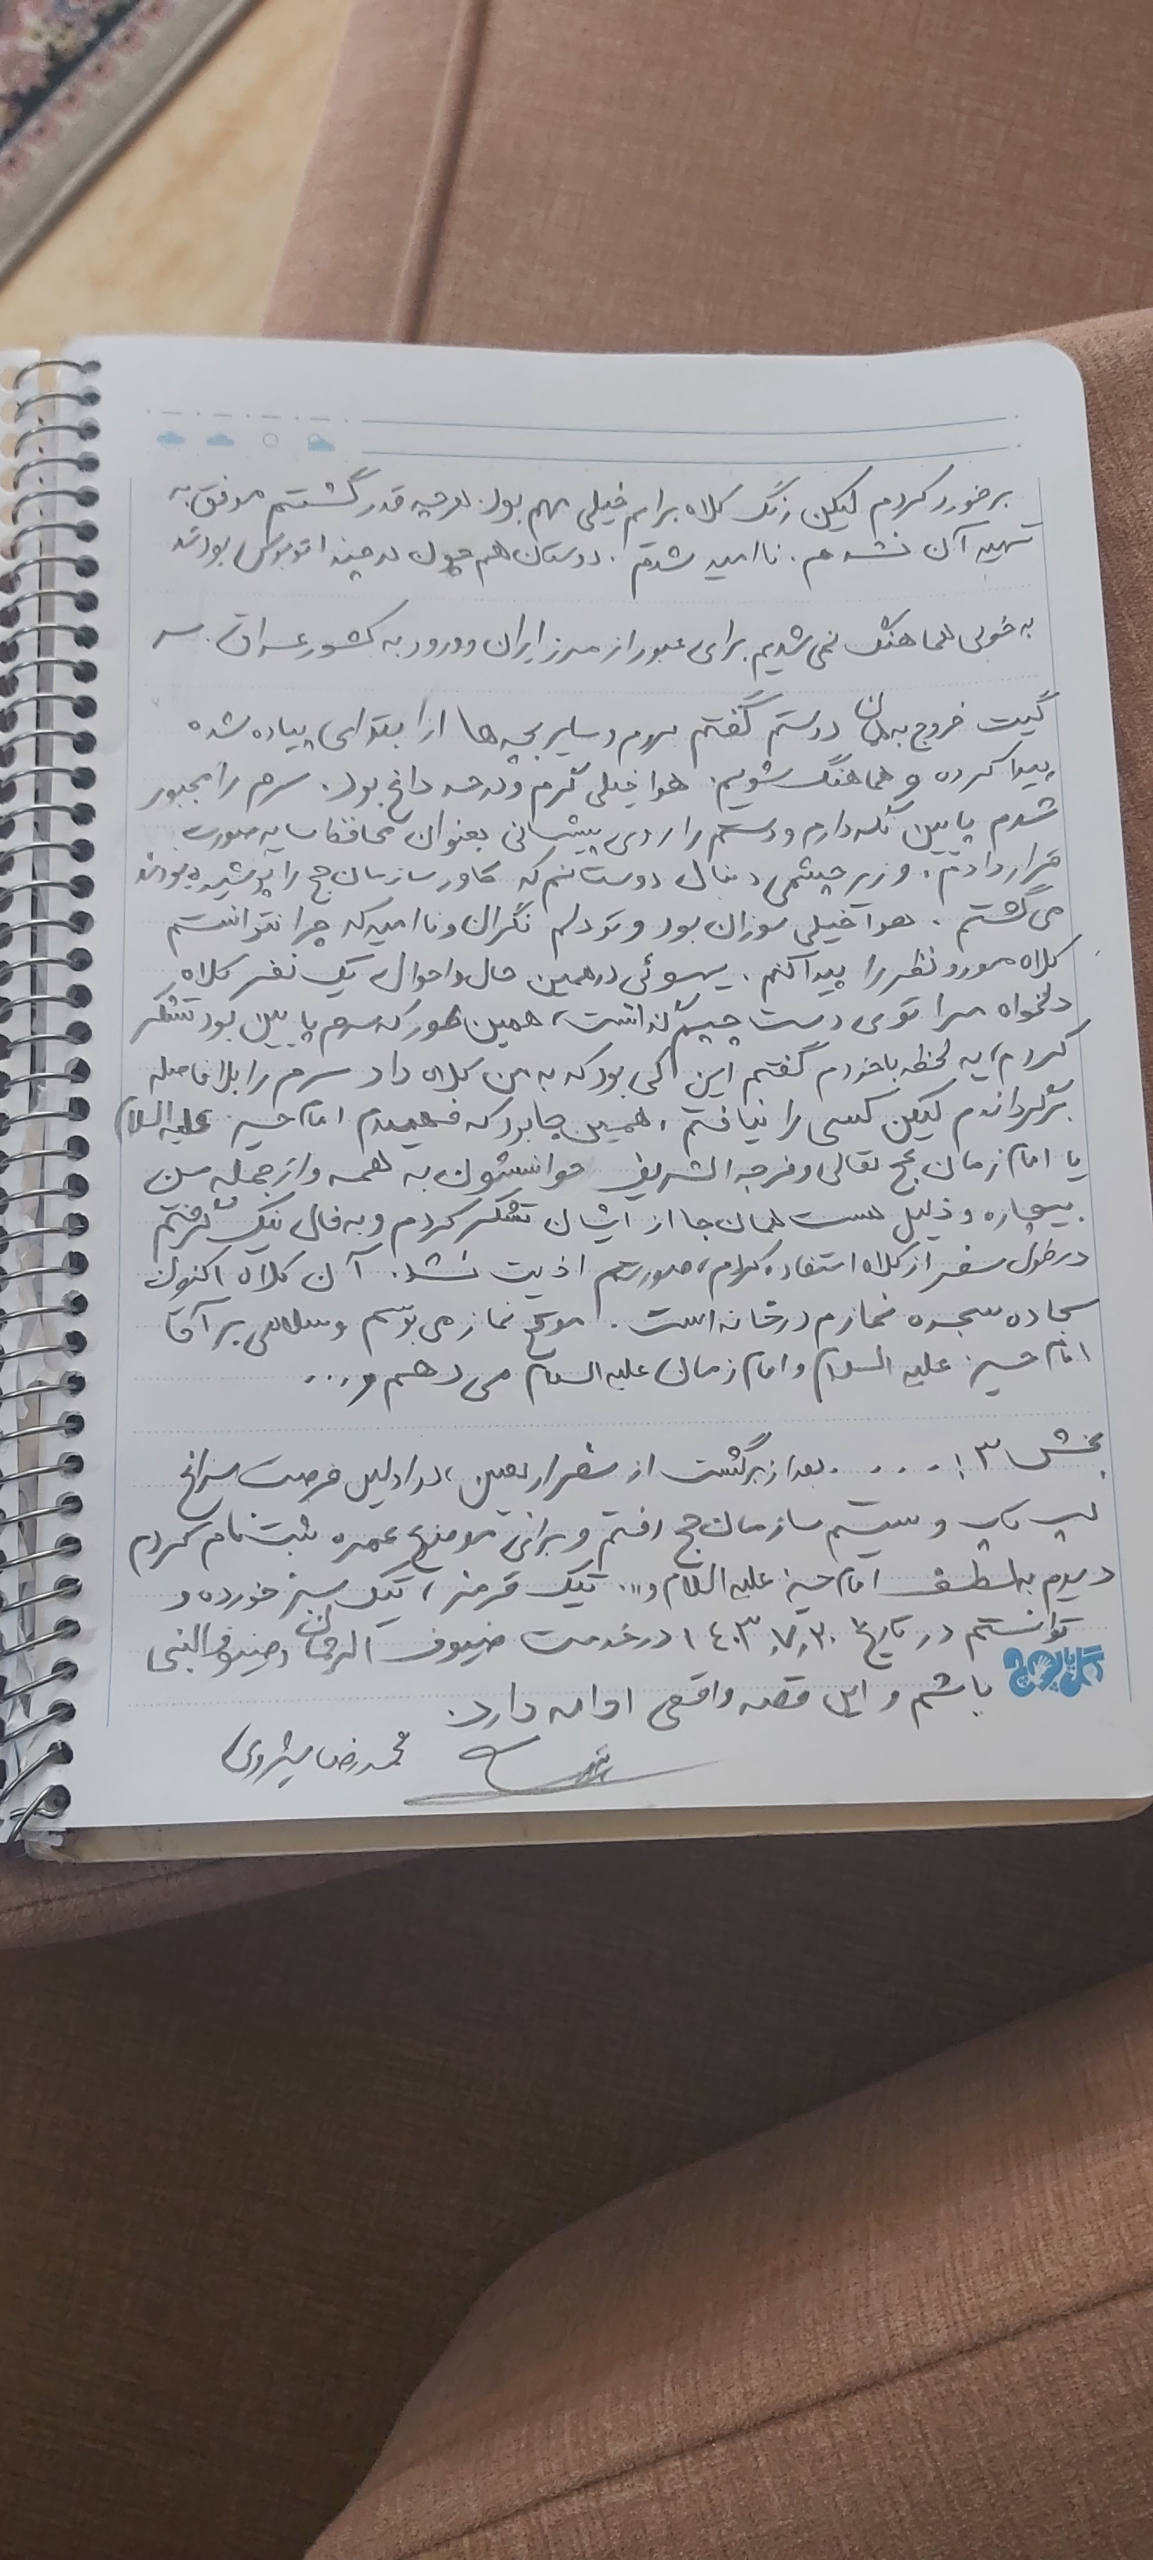 برخورد کردم لیکن رنگ کلاه برایم خیلی مهم بود. هرچه قدر گشتم موفق به
تهیه آن نشدم. ناامید شدم. دوستان هم چون در چند اتوبوس بودند
به خوبی هماهنگ نمی شدیم. برای عبور از مرز ایران و ورود به کشور عراق. سه
گیت خروج به همان دوستم گفتم بروم و سایر بچه ها از ابتدای پیاده شده
پیدا کرده و هماهنگ شویم. هوا خیلی گرم و در حد داغ بود. سرم را مجبور
شدم پایین نگه دارم و دستم را روی پیشانی بعنوان محافظ سایه صورت
قرار دادم. و زیر چشمی دنبال دوستانم که کاور سازمان حج را پوشیده بودند
می گشتم. هوا خیلی سوزان بود و تو دلم نگران و ناامید که چرا نتوانستم
کلاه مورد نظر را پیدا کنم. یهوئی در همین حال و احوال، یک نفر کلاه
دلخواه مرا توی دست چپم گذاشت، همین طور که سرم پایین بود تشکر
کردم، یه لحظه با خودم گفتم این کی بود که به من کلاه داد سرم را بلافاصله
برگرداندم لیکن کسی را نیافتم. همین جا بود که فهمیدم امام حسین علیه السلام
یا امام زمان عج تعالی و فرجه الشریف حواسشون به همه و از جمله من
بیچاره و ذلیل هست همان جا از ایشان تشکر کردم و به فال نیک گرفتم
در طول سفر از کلاه استفاده کردم، صورتم اذیت نشد. آن کلاه اکنون
سجاده سجده نمازم در خانه است. موقع نماز می بوسم و سلامی بر آقا
امام حسین علیه السلام و امام زمان علیه السلام می دهم و ...
بخش ۳: .... بعد از برگشت از سفر اربعین، در اولین فرصت سراغ
لپ تاپ و سیستم سازمان حج رفتم و برای موضوع عمره ثبت نام کردم
دیدم به لطف امام حسین علیه السلام و... تیک قرمز، تیک سبز خورده و
توانستم در تاریخ ۱۴۰۳/۷/۲۰ در خدمت ضیوف الرحمان و ضیوف النبی
باشم و این قصه واقعی ادامه دارد.
محمدرضا